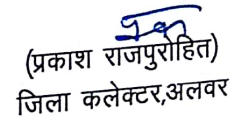 (प्रकाश राजपुरोहित)
जिला कलेक्टर,अलवर